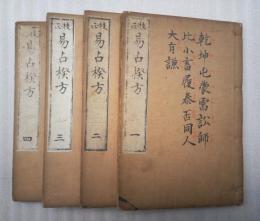 乾坤屯蒙需訟師
比小畜履泰否同人
大有謙
易占揆方 一
易占揆方 二
易占揆方 三
易占揆方 四